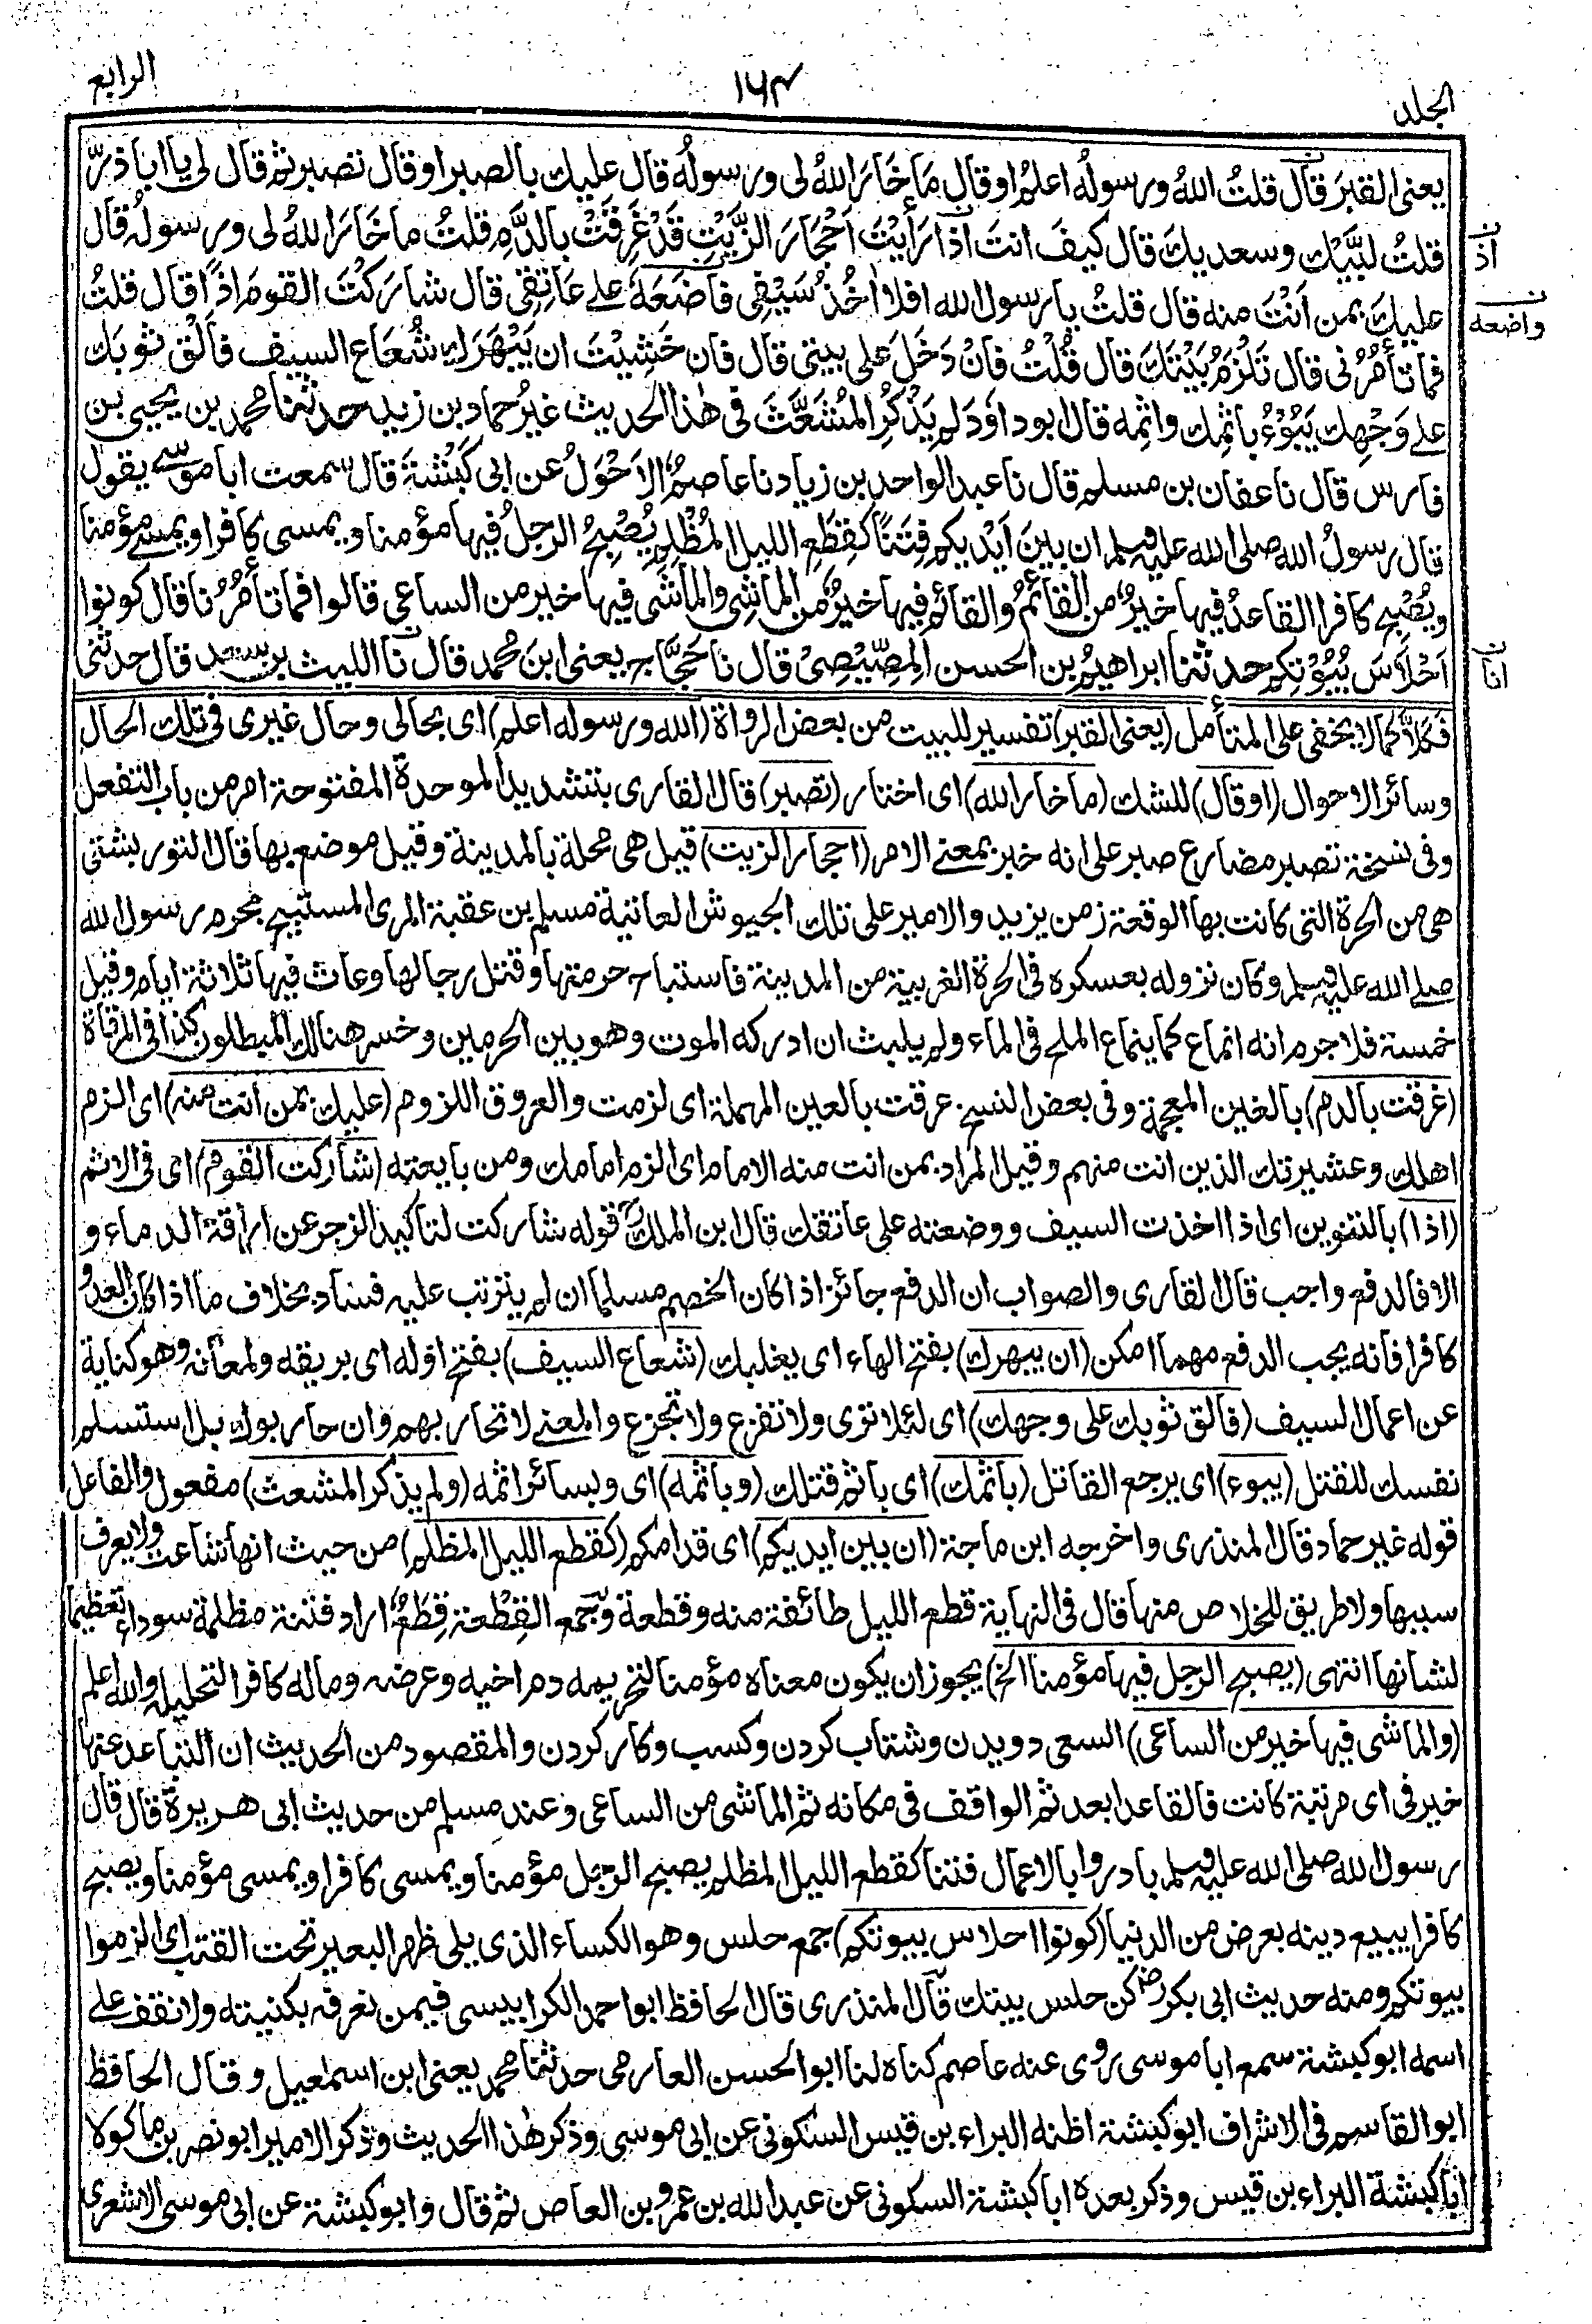 الجلد
١٦٤
الرابع
يعنى القبرَ قال قلتُ اللهُ ورسولُه اعلمُ او قال مَا خَارَ اللهُ لى ورسولُه قال عليك بالصبر او قال تصبر ثم قال لى يا اباذرّ
قلتُ لبَّيْك وسعديك قال كيفَ انتَ اذا رَأيْتَ اَحْجَارَ الزَّيْتِ قَدْ غَرِقَتْ بالدَّمِ قلتُ ما خَارَ اللهُ لى ورسولُه قال
عليكَ بمن اَنْتَ منه قال قلتُ يارسول الله افلا اٰخُذُ سَيْفِى فاَضَعَهُ على عَاتِقِى قال شارَكْتَ القومَ اذًا قال قلتُ
فما تأمُرُنى قال تَلْزَمُ بَيْتَكَ قال قُلْتُ فَانْ دَخَلَ على بيتى قال فان خَشِيْتَ ان يَبْهَرَك شُعَاعُ السيف فاَلْقِ ثوبَك
على وَجْهِك يَبُوْءُ باثمِك واثمِه قال ابو داوٗدَ لم يَذْكُرِ المُشَعَّثَ فى هٰذا الحديث غيرُ حماد بن زيد حدثنا محمد بن يحيى بن
فارس قال نا عفان بن مسلم قال نا عبد الواحد بن زياد نا عاصمٌ الاَحْوَلُ عن ابى كَبْشَةَ قال سمعت ابا موسى يقول
قال رسولُ الله صلى الله عليه وسلم ان بينَ اَيْديكم فِتَنًا كَقِطَعِ الليل المُظْلِم يُصْبِحُ الرجلُ فيها مؤمنا ويمسى كافرا ويمسى مؤمنا
ويُصْبِح كافرا القاعدُ فيها خيرٌ من القائمِ والقائم فيها خيرٌ من الماشِى والماشى فيها خير من الساعى قالوا فما تأمُرُنا قال كونوا
اَحْلاَسَ بُيُوْتِكم حدثنا ابراهيمُ بن الحسن المِصِّيْصِىْ قال نا حَجَّاج يعنى ابنَ محمد قال نا الليث بن سعد قال حدثنى
اذ
واضعه
انا
فكلا كما لا يخفى على المتأمل (يعنى القبر) تفسير للبيت من بعض الرواة (الله ورسوله اعلم) اى بحالى وحال غيرى فى تلك الحال
وسائر الاحوال (او قال) للشك (ما خار الله) اى اختار (تصبر) قال القارى بتشديد الموحدة المفتوحة امر من باب التفعل
وفى نسخة تصبر مضارع صبر على انه خبر بمعنى الامر (احجار الزيت) قيل هى محلة بالمدينة وقيل موضع بها قال التوربشتى
هى من الحرة التى كانت بها الوقعة زمن يزيد والامير على تلك الجيوش العاتية مسلم بن عقبة المرى المستبيح بحرم رسول الله
صلى الله عليه وسلم وكان نزوله بعسكره فى الحرة الغربية من المدينة فاستباح حرمتها وقتل رجالها وعاث فيها ثلاثة ايام وقيل
خمسة فلا جرم انه انماع كما ينماع الملح فى الماء ولم يلبث ان ادركه الموت وهو بين الحرمين وخسر هنالك المبطلون كذا فى المرقاة
(غرقت بالدم) بالغين المعجمة وفى بعض النسخ عرقت بالعين المهملة اى لزمت والعروق اللزوم (عليك بمن انت منه) اى الزم
اهلك وعشيرتك الذين انت منهم وقيل المراد بمن انت منه الامام اى الزم امامك ومن بايعته (شاركت القوم) اى فى الاثم
(اذا) بالتنوين اى اذا اخذت السيف ووضعته على عاتقك قال ابن الملك قوله شاركت لتاكيد الزجر عن اراقة الدماء و
الا فالدفع واجب قال القارى والصواب ان الدفع جائز اذا كان الخصم مسلما ان لم يترتب عليه فساد بخلاف ما اذا كان العدو
كافرا فانه يجب الدفع مهما امكن (ان يبهرك) بفتح الهاء اى يغلبك (شعاع السيف) بفتح اوله اى بريقه ولمعانه وهو كناية
عن اعمال السيف (فالق ثوبك على وجهك) اى لئلا ترى ولا تفزع ولا تجزع والمعنى لا تحاربهم وان حاربوك بل استسلم
نفسك للقتل (يبوء) اى يرجع القاتل (باثمك) اى باثم قتلك (وباثمه) اى وبسائر اثمه (ولم يذكر المشعث) مفعول والفاعل
قوله غير حماد قال المنذرى واخرجه ابن ماجة (ان بين ايديكم) اى قدامكم (كقطع الليل المظلم) من حيث انها شاعت ولا يعرف
سببها ولا طريق للخلاص منها قال فى النهاية قطع الليل طائفة منه وقطعة وجمع القِطْعة قِطَعٌ اراد فتنة مظلمة سوداء تعظيما
لشانها انتهى (يصبح الرجل فيها مؤمنا الخ) يجوز ان يكون معناه مؤمنا لتحريمه دم اخيه وعرضه وماله كافرا لتحليله والله اعلم
(والماشى فيها خير من الساعى) السعى دويدن وشتاب كردن وكسب وكار كردن والمقصود من الحديث ان التباعد عنها
خير فى اى مرتبة كانت فالقاعد ابعد ثم الواقف فى مكانه ثم الماشى من الساعى وعند مسلم من حديث ابى هريرة قال قال
رسول الله صلى الله عليه وسلم بادروا بالاعمال فتنا كقطع الليل المظلم يصبح الرجل مؤمنا ويمسى كافرا ويمسى مؤمنا ويصبح
كافرا يبيع دينه بعرض من الدنيا (كونوا احلاس بيوتكم) جمع حلس وهو الكساء الذى يلى ظهر البعير تحت القتب اى الزموا
بيوتكم ومنه حديث ابى بكر رض كن حلس بيتك قال المنذرى قال الحافظ ابو احمد الكرابيسى فيمن نعرفه بكنيته ولا نقف على
اسمه ابو كبشة سمع ابا موسى روى عنه عاصم كناه لنا ابو الحسن العازمى حدثنا محمد يعنى ابن اسمعيل وقال الحافظ
ابو القاسم فى الاشراف ابو كبشة اظنه البراء بن قيس السكونى عن ابى موسى وذكر هٰذا الحديث وذكر الامير ابو نصر بن ماكولا
ابا كبشة البراء بن قيس وذكر بعده ابا كبشة السكونى عن عبد الله بن عمرو بن العاص ثم قال وابو كبشة عن ابى موسى الاشعرى